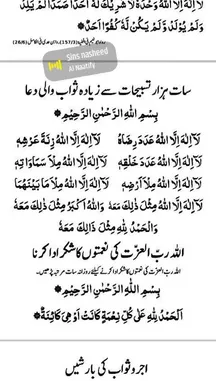 لَا اِلٰهَ اِلَّا اللّٰهُ وَحْدَهٗ لَا شَرِيْكَ لَهٗ اَحَدًا صَمَدًا لَمْ يَلِدْ
وَلَمْ يُوْلَدْ وَلَمْ يَكُنْ لَّهٗ كُفُوًا اَحَدٌ
Sms nasheed
Al Naatify
سات ہزار تسبیحات سے زیادہ ثواب والی دعا
بِسْمِ اللّٰهِ الرَّحْمٰنِ الرَّحِيْمِ
لَا اِلٰهَ اِلَّا اللّٰهُ عَدَدَ رِضَاهُ لَا اِلٰهَ اِلَّا اللّٰهُ زِنَةَ عَرْشِهٖ
لَا اِلٰهَ اِلَّا اللّٰهُ عَدَدَ خَلْقِهٖ لَا اِلٰهَ اِلَّا اللّٰهُ مِلْأَ سَمَاوَاتِهٖ
لَا اِلٰهَ اِلَّا اللّٰهُ مِلْأَ اَرْضِهٖ لَا اِلٰهَ اِلَّا اللّٰهُ مِلْأَ مَا بَيْنَهُمَا
لَا اِلٰهَ اِلَّا اللّٰهُ مِثْلَ ذٰلِكَ مَعَهٗ وَاللّٰهُ اَكْبَرُ مِثْلَ ذٰلِكَ مَعَهٗ
وَالْحَمْدُ لِلّٰهِ مِثْلَ ذٰلِكَ مَعَهٗ
اللہ ربّ العزّت کی نعمتوں کا شکر ادا کرنا
اللہ ربّ العزّت کی نعمتوں کا شکر ادا کرنے کیلئے روزانہ سات مرتبہ پڑھیں۔
بِسْمِ اللّٰهِ الرَّحْمٰنِ الرَّحِيْمِ
اَلْحَمْدُ لِلّٰهِ عَلٰى كُلِّ نِعْمَةٍ كَانَتْ اَوْ هِيَ كَائِنَةٌ
اجر و ثواب کی بارشیں